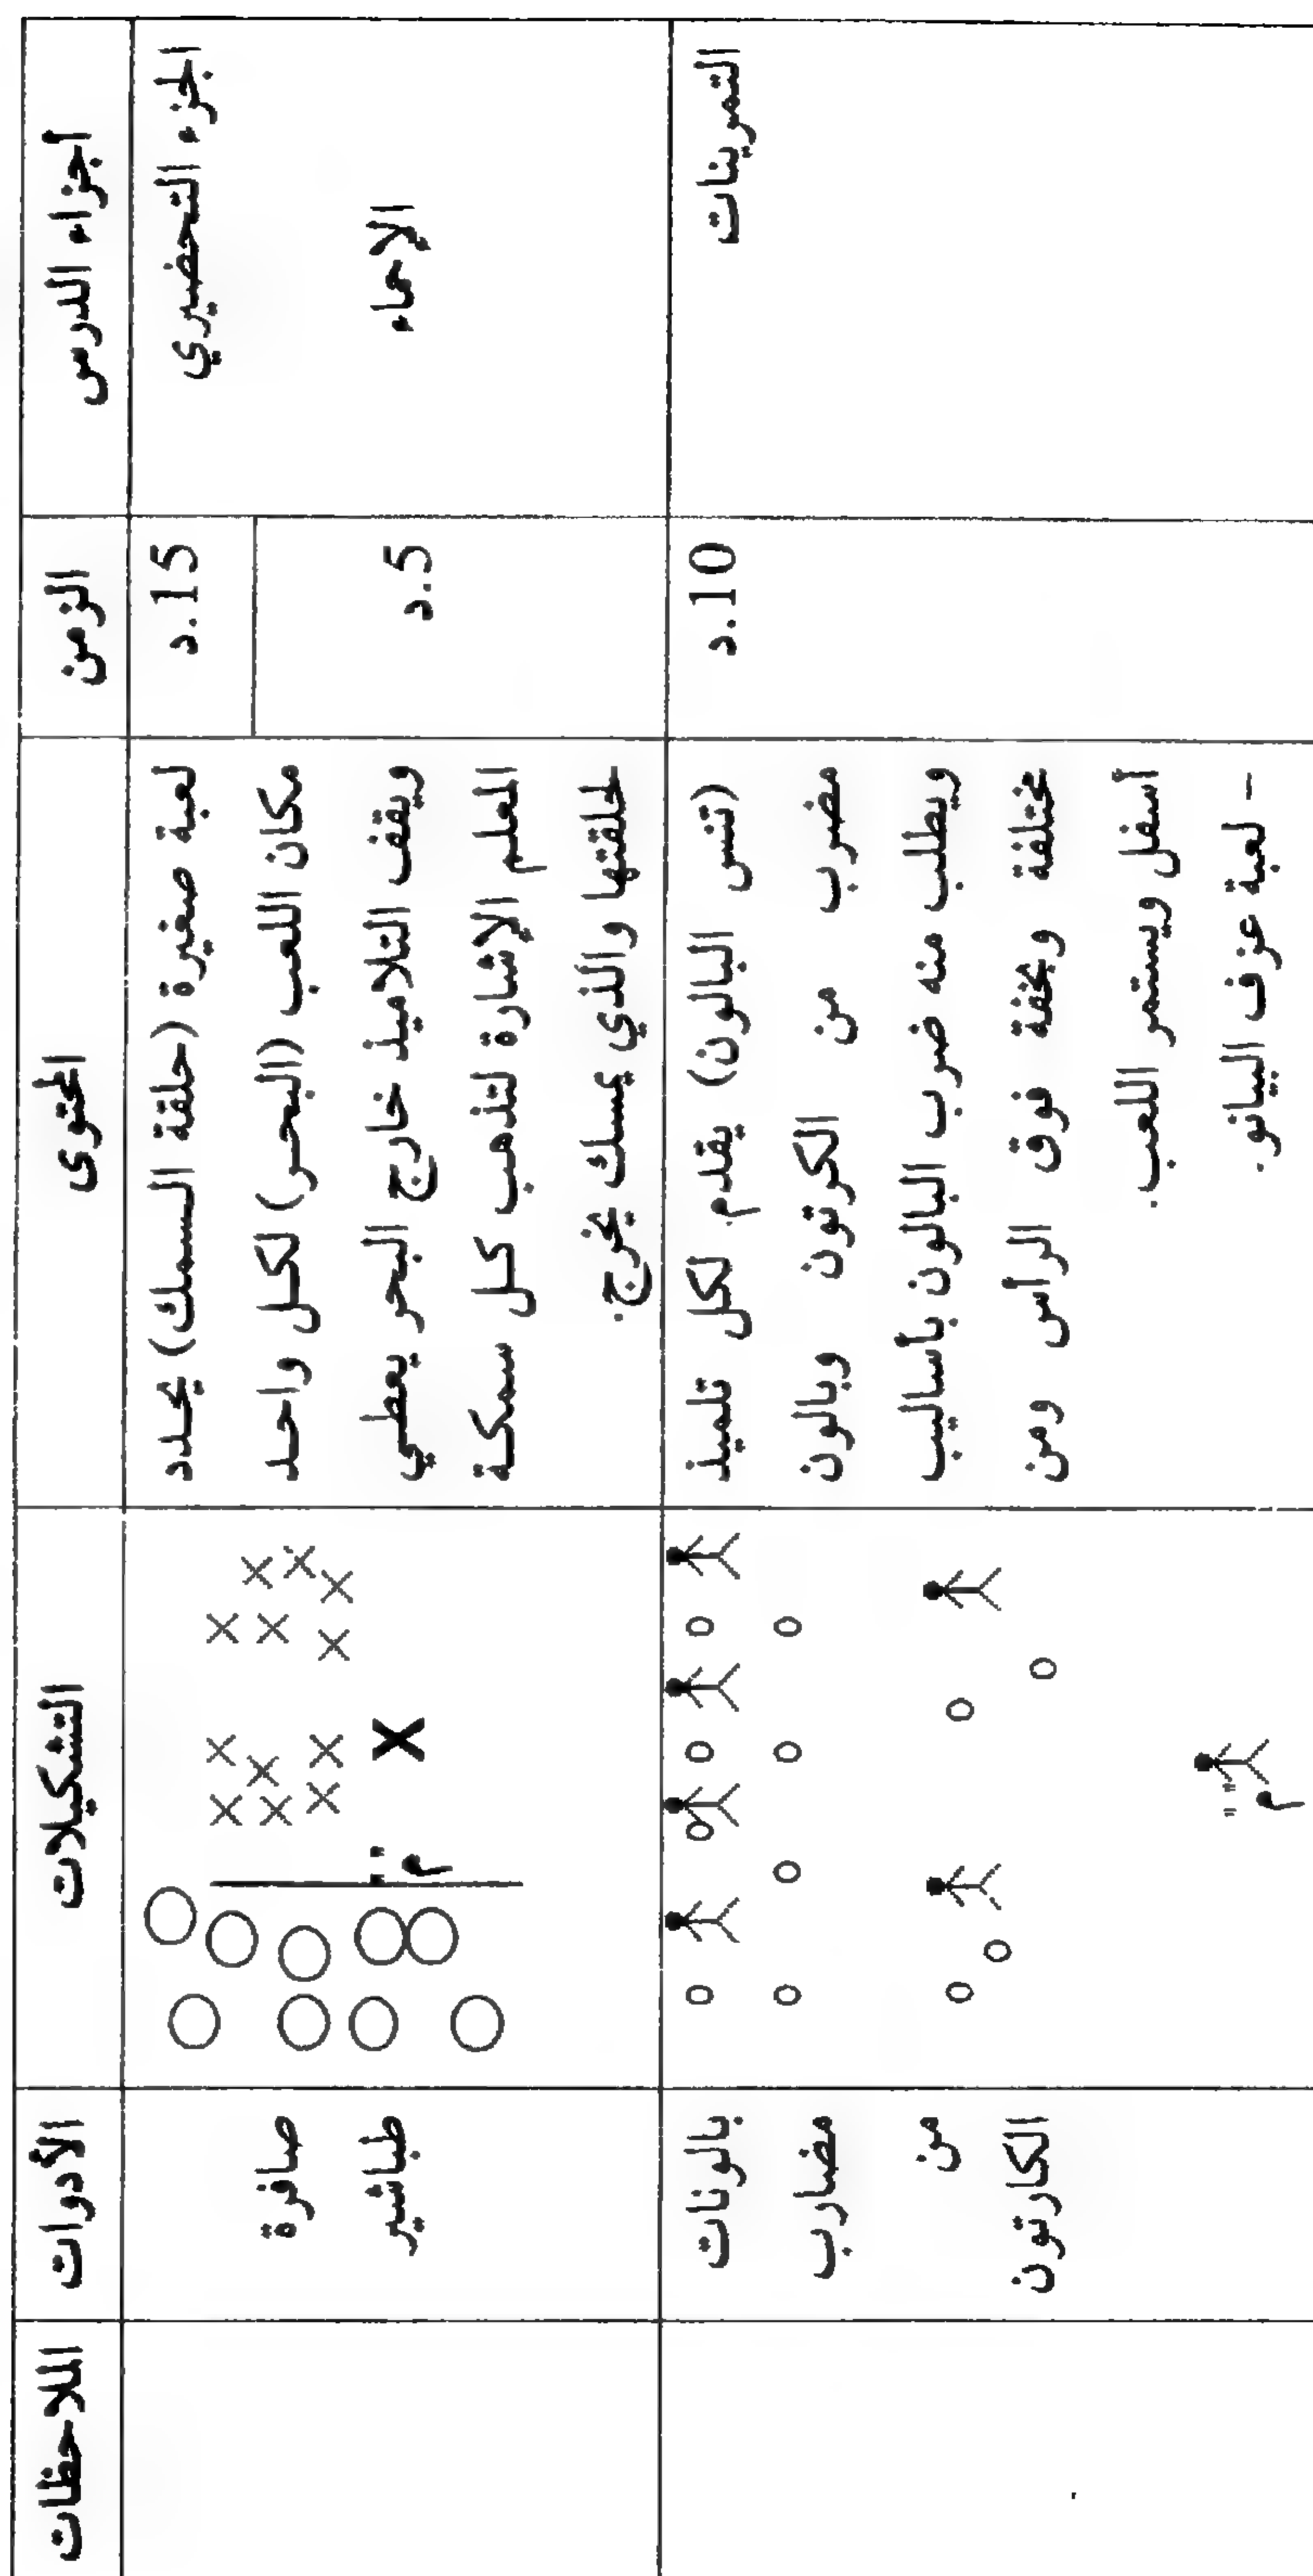 أجزاء الدرس
الزمن
المحتوى
التشكيلات
الأدوات
الملاحظات
الجزء التحضيري
الإحماء
15.د
5.د
لعبة صغيرة (حلقة السمك) يحدد
مكان اللعب (البحر) لكل واحد
ويقف التلاميذ خارج البحر يعطي
المعلم الإشارة لتذهب كل سمكة
لحلقتها والذي يمسك يخرج.
"م"
صافرة
طباشير
التمرينات
10.د
(تنس البالون) يقدم لكل تلميذ
مضرب من الكرتون وبالون
ويطلب منه ضرب البالون بأساليب
مختلفة وبخفة فوق الرأس ومن
أسفل ويستمر اللعب.
- لعبة عزف البيانو.
"م"
بالونات
مضارب
من
الكارتون